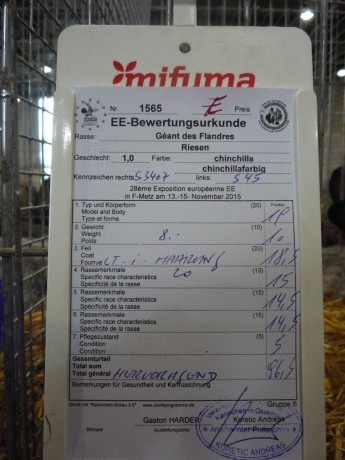 mifuma
Nr. 1565 E Preis
EE-Bewertungsurkunde
Rasse: Géant des Flandres
Riesen
Geschlecht: 1,0 Farbe: chinchilla
chinchillafarbig
Kennzeichen rechts: S3407 links: S45
28ème Exposition européenne EE
in F-Metz am 13.-15- November 2015
1. Typ und Körperform (20) Punkte
Model and Body
Type et forme
2. Gewicht (10)
Weight 8.- 10
Poids
3. Fell (20)
Coat 18,5
Fourrure LT. i.
4. Rassemerkmale (15)
Specific race characteristics 20 15
Spécificité de la rasse
5. Rassemerkmale (15)
Specific race characteristics 14,5
Spécificité de la rasse
6. Rassemerkmale (15)
Specific race characteristics 14,5
Spécificité de la rasse
7. Pflegezustand (5)
Condition 5
Condition
Gesamturteil
Total sum 96,5
Total général HERVORRAGEND
Bemerkungen für Gesundheit und Kennzeichnung
Gruppe 6
Gaston HARDER Koretic Andreas
Stempel Ausstellungsleiter
KORETIC ANDREAS